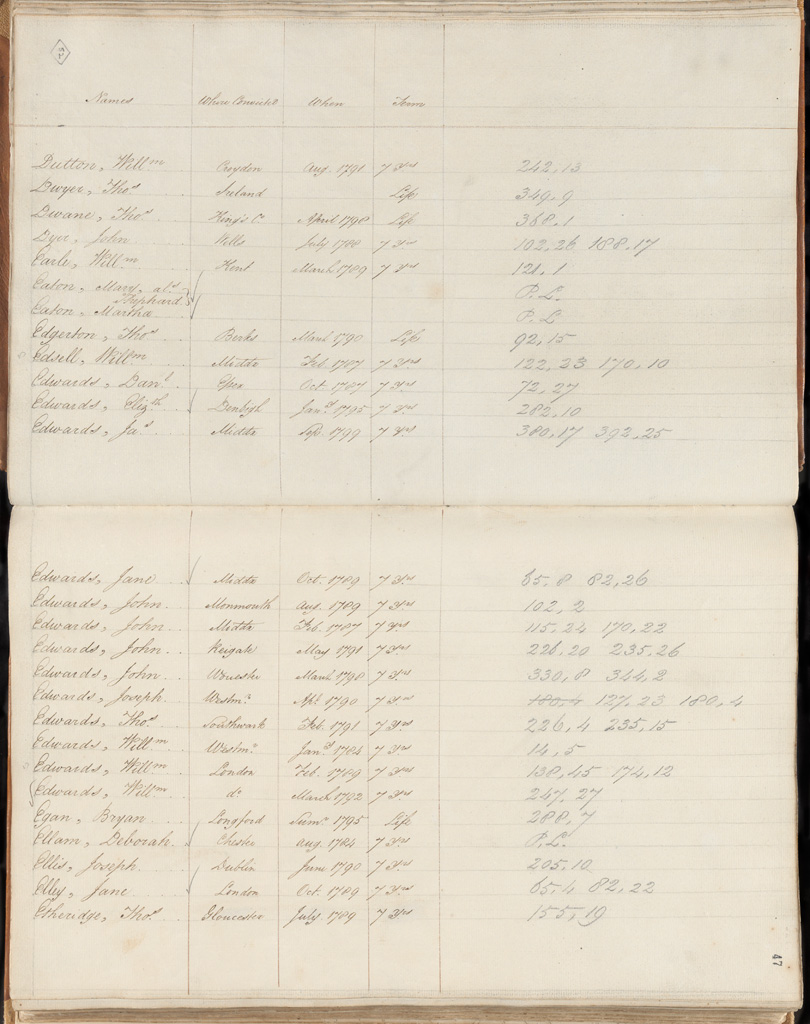 Names Where Convicted When Term
Dutton, Willm Croydon Augt 1791 7 Yrs 242,13
Dwyer, Thos Ireland Life 349,9
Dwane, Thos King's Co April 1798 Life 368,1
Dyer, John Wells July 1788 7 Yrs 102,26 188,17
Earle, Willm Kent March 1789 7 Yrs 121,1
Eaton, Mary, als P.L.
Shephard
Eaton, Martha P.L
Edgerton, Thos Berks March 1790 Life 92,15
Edsell, Willm Middx Feb. 1787 7 Yrs 122,23 170,10
Edwards, Danl Essex Oct. 1787 7 Yrs 72,27
Edwards, Elizth Denbigh Jany 1795 7 Yrs 282,10
Edwards, Jas Middx Sep. 1799 7 Yrs 380,17 392,25
Edwards, Jane Middx Oct. 1789 7 Yrs 65,8 82,26
Edwards, John Monmouth Aug. 1789 7 Yrs 102,2
Edwards, John Middx Feb. 1787 7 Yrs 115,24 170,22
Edwards, John Reigate May 1791 7 Yrs 226,20 235,26
Edwards, John Worcester March 1798 7 Yrs 330,8 344,2
Edwards, Joseph Westmr Apl. 1790 7 Yrs 180,4 127,23 180,4
Edwards, Thos Southwark Feb. 1791 7 Yrs 226,4 235,15
Edwards, Willm Westmr Jany 1784 7 Yrs 14,5
Edwards, Willm London Feb. 1789 7 Yrs 138,45 174,12
Edwards, Willm do March 1792 7 Yrs 247,27
Egan, Bryan Longford Sumr 1795 Life 288,7
Ellam, Deborah Chester Augt 1784 7 Yrs P.L.
Ellis, Joseph Dublin June 1790 7 Yrs 205,10
Elley, Jane London Oct. 1789 7 Yrs 65,4 82,22
Etheridge, Thos Gloucester July 1789 7 Yrs 155,19
47